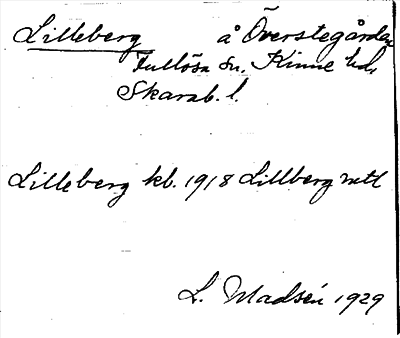 Lilleberg å Överstegården
Fullösa sn, Kinne hd,
Skarab. l.
Lilleberg kb. 1918 Lillberg mtl
L. Madsén 1929